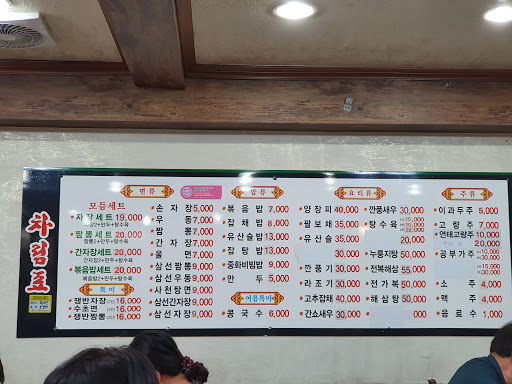 차림표
모듬세트
자장세트 19,000
짬뽕세트 20,000
짬뽕2+만두+탕수육
간자장세트 20,000
간자장2+만두+탕수육
볶음밥세트 20,000
볶음밥2+만두+탕수육
특미
쟁반자장 16,000
수초면 16,000
쟁반짬뽕 16,000
면류
손자장 5,000
우동 7,000
짬뽕 7,000
간자장 7,000
울면 7,000
삼선짬뽕 9,000
삼선우동 9,000
사천탕면 9,000
삼선간자장 9,000
삼선자장 9,000
밥류
볶음밥 7,000
잡채밥 8,000
유산슬밥 13,000
잡탕밥 13,000
중화비빔밥 9,000
만두 5,000
여름특미
콩국수 8,000
요리류
양장피 40,000
팔보채 35,000
유산슬 35,000
30,000
깐풍기 30,000
라조기 30,000
고추잡채 40,000
간쇼새우 30,000
깐풍새우 30,000
탕수육 28,000
20,000
누룽지탕 50,000
전복해삼 55,000
전가복 50,000
해삼탕 50,000
주류
이과두주 5,000
고량주 7,000
연태고량주 10,000
20,000
공부가주
소주 4,000
맥주 4,000
음료수